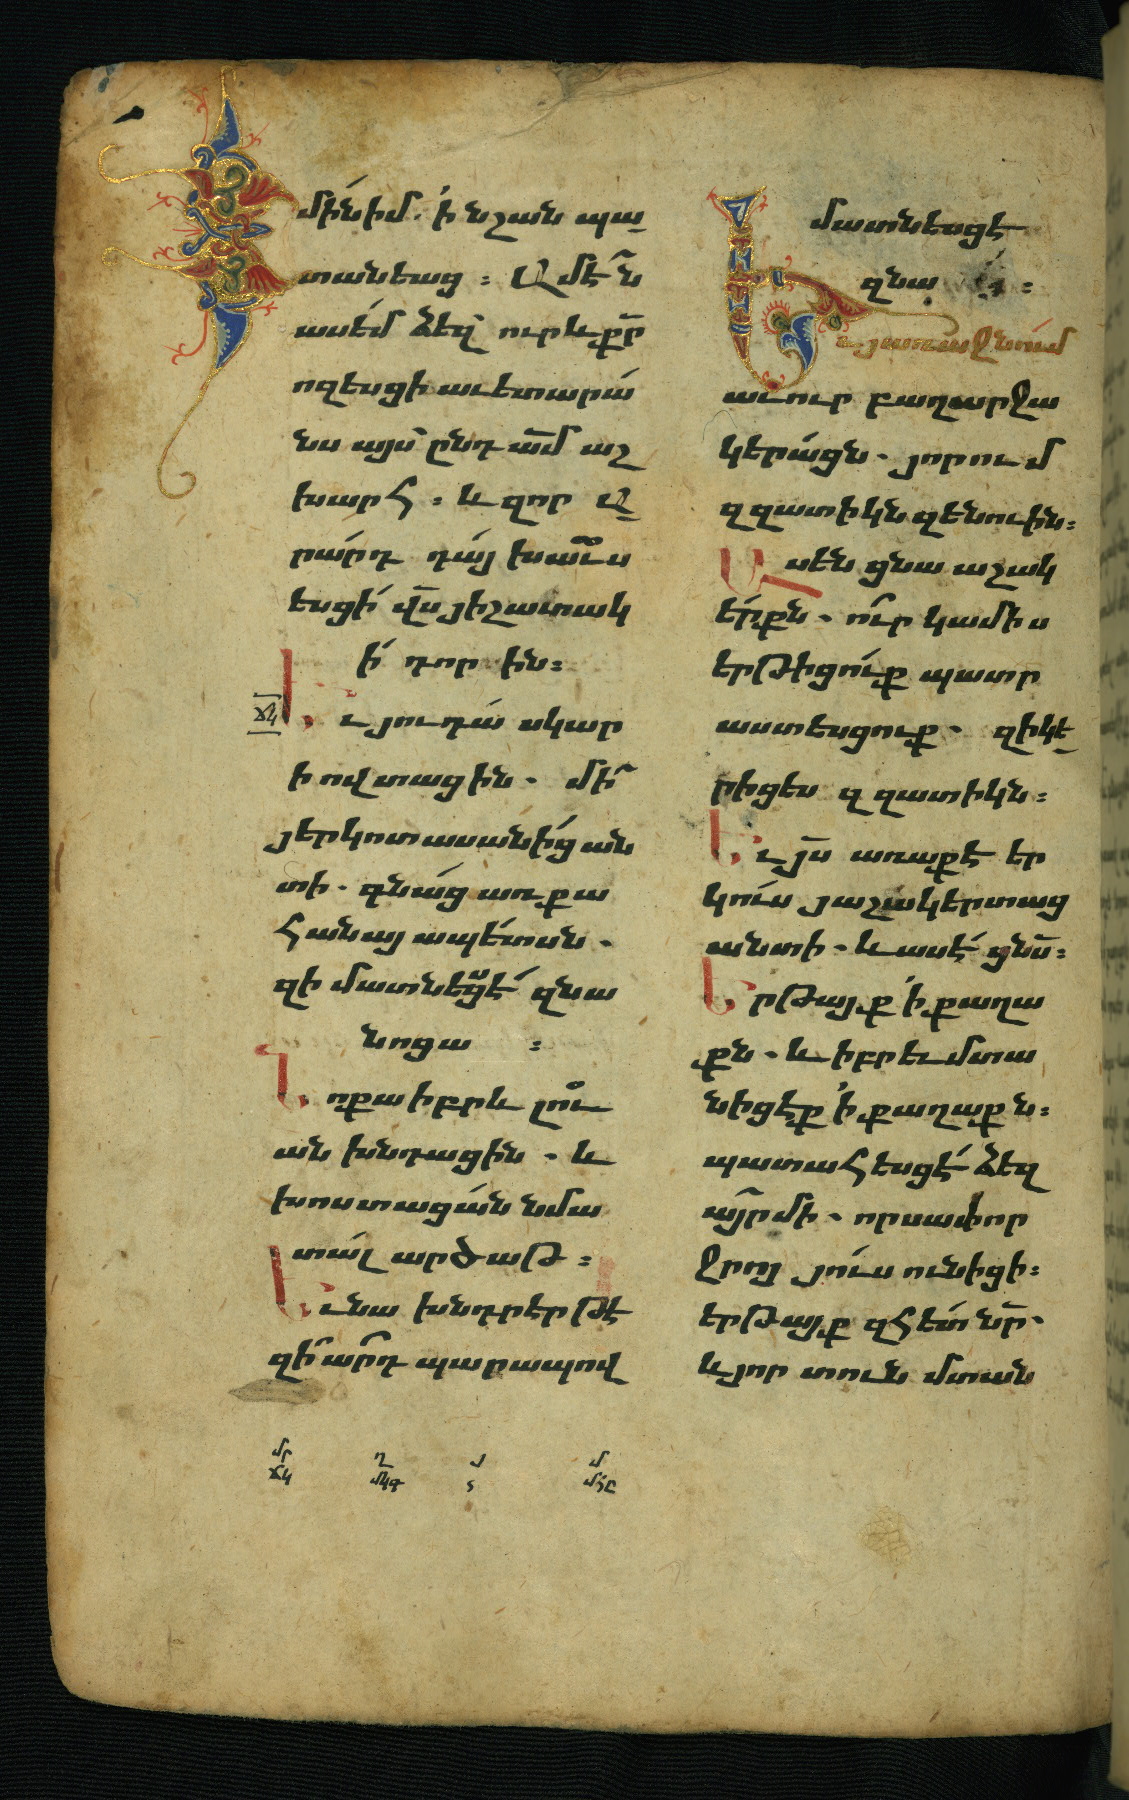 մինիմ. ՚ի նշան պա
տանեաց ։ Ամէն
ասեմ ձեզ ուր և քր
ոզեսցի աւետարա
նս այս ընդ ամ աշ
խարհ ։ և զոր Ա
րարդ դայ խաւս
եսցի վս յիշատակ
ի դորին ։
ՃԿ Եւ յուդա սկար
իովտացին . մի
յերկոտասանից ան
տի . գնաց առ քա
հանայապետսն .
զի մատնեսցէ զնա
նոցա ։
Նոքա իբրև լու
ան խնդացին . և
խոստացան նմա
տալ արծաթ ։
Եւ նա խնդրէր թէ
զիարդ պարապով
մատնեսցէ
զնա ։
Եւ յառաջնում
աւուր բաղարջա
կերացն . յորում
զզատիկն զենուին ։
Ասեն ցնա աշակ
երքն . ուր կամիս
երթիցուք պատր
աստեսցուք . զի կե
րիցես զզատիկն ։
Եւ յս առաքէ եր
կուս յաշակերտաց
անտի . և ասէ ցնս ։
Երթայք ՚ի քաղա
քն . և իբրեւ մտա
նիցէք ՚ի քաղաքն ։
պատահեսցէ ձեզ
այր մի . որ սափոր
ջրոյ յուս ունիցի ։
երթայք զհետ նր .
և յոր տուն մտան